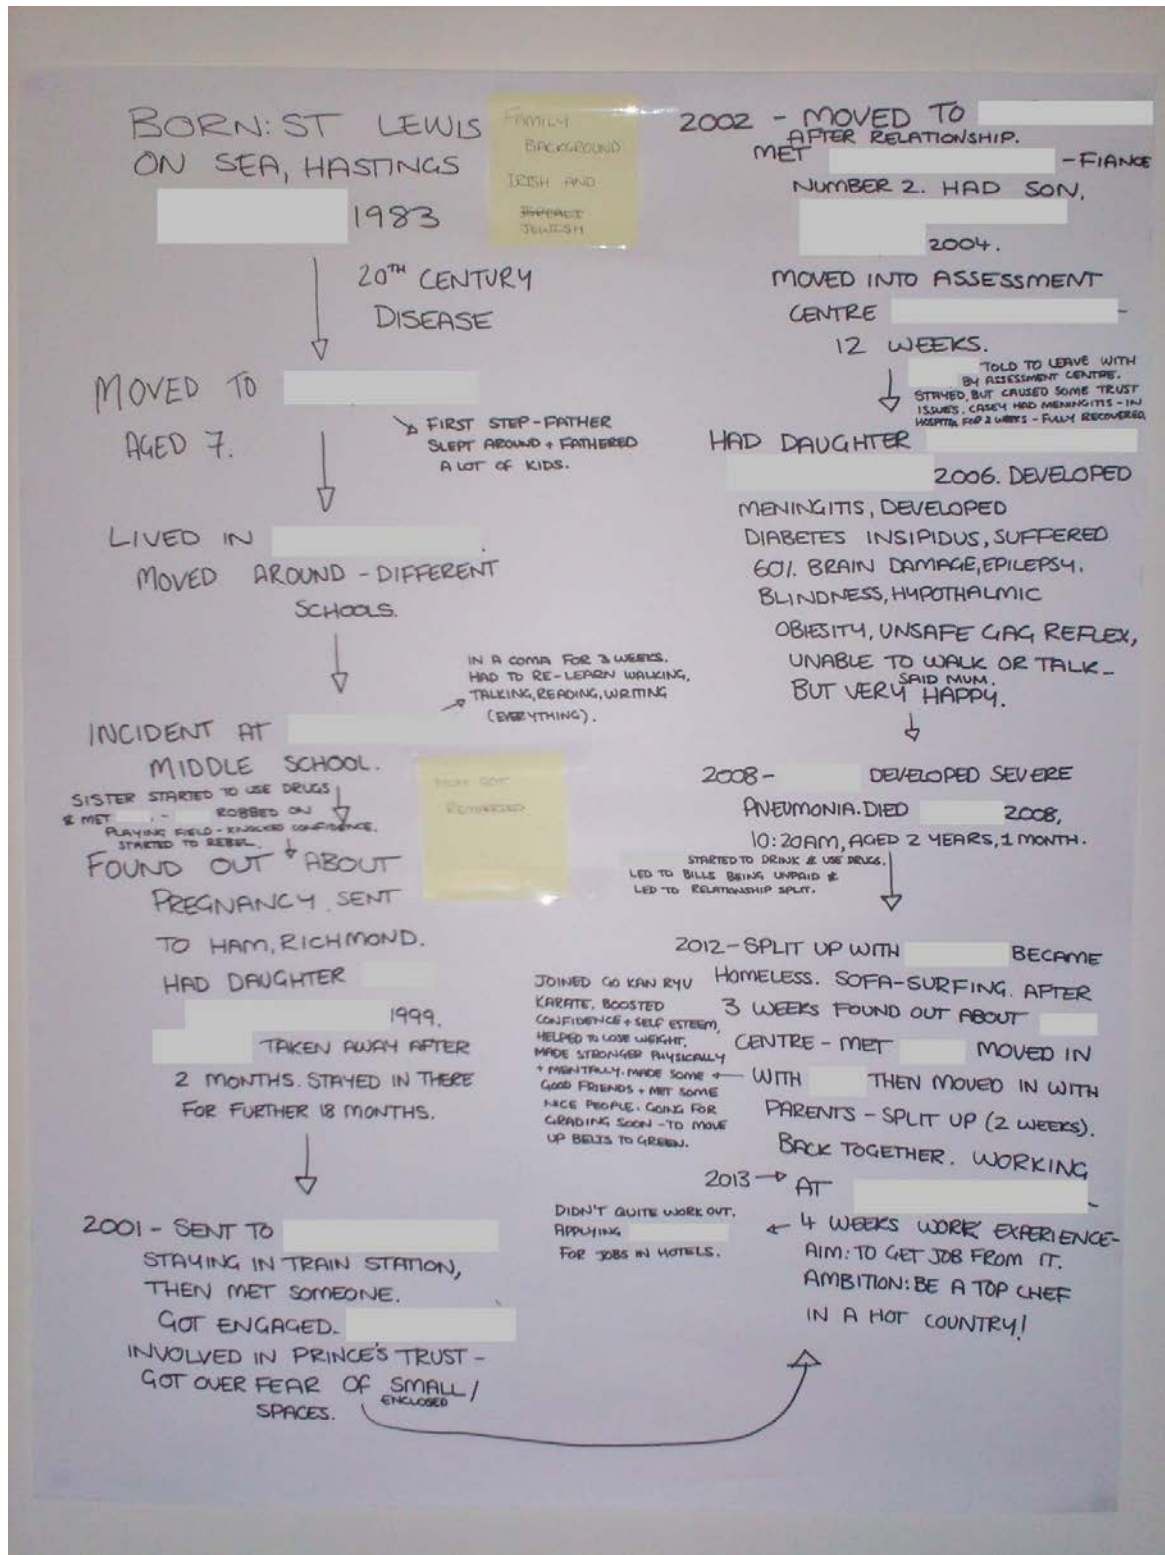 BORN: ST LEWIS
ON SEA, HASTINGS
1983
FAMILY
BACKGROUND
IRISH AND
JEWISH
20TH CENTURY
DISEASE
MOVED TO
AGED 7.
FIRST STEP-FATHER
SLEPT AROUND + FATHERED
A LOT OF KIDS.
LIVED IN
MOVED AROUND - DIFFERENT
SCHOOLS.
IN A COMA FOR 3 WEEKS.
HAD TO RE-LEARN WALKING,
TALKING, READING, WRITING
(EVERYTHING).
INCIDENT AT
MIDDLE SCHOOL.
SISTER STARTED TO USE DRUGS
& MET . - ROBBED ON
PLAYING FIELD - KNOCKED CONFIDENCE.
STARTED TO REBEL.
MUM GOT
REMARRIED
FOUND OUT ABOUT
PREGNANCY. SENT
TO HAM, RICHMOND.
HAD DAUGHTER
1999.
TAKEN AWAY AFTER
2 MONTHS. STAYED IN THERE
FOR FURTHER 18 MONTHS.
2001 - SENT TO
STAYING IN TRAIN STATION,
THEN MET SOMEONE.
GOT ENGAGED.
INVOLVED IN PRINCE'S TRUST -
GOT OVER FEAR OF SMALL /
ENCLOSED
SPACES.
2002 - MOVED TO
AFTER RELATIONSHIP.
MET - FIANCE
NUMBER 2. HAD SON,
2004.
MOVED INTO ASSESSMENT
CENTRE -
12 WEEKS.
TOLD TO LEAVE WITH
BY ASSESSMENT CENTRE.
STAYED, BUT CAUSED SOME TRUST
ISSUES. CASEY HAD MENINGITIS - IN
HOSPITAL FOR 2 WEEKS - FULLY RECOVERED.
HAD DAUGHTER
2006. DEVELOPED
MENINGITIS, DEVELOPED
DIABETES INSIPIDUS, SUFFERED
60% BRAIN DAMAGE, EPILEPSY,
BLINDNESS, HYPOTHALMIC
OBIESITY, UNSAFE GAG REFLEX,
UNABLE TO WALK OR TALK -
SAID MUM.
BUT VERY HAPPY.
2008 - DEVELOPED SEVERE
PNEUMONIA. DIED 2008,
10:20AM, AGED 2 YEARS, 1 MONTH.
STARTED TO DRINK & USE DRUGS.
LED TO BILLS BEING UNPAID &
LED TO RELATIONSHIP SPLIT.
2012 - SPLIT UP WITH BECAME
HOMELESS. SOFA-SURFING. AFTER
3 WEEKS FOUND OUT ABOUT
CENTRE - MET MOVED IN
WITH THEN MOVED IN WITH
PARENTS - SPLIT UP (2 WEEKS).
BACK TOGETHER. WORKING
2013 → AT
4 WEEKS WORK EXPERIENCE -
AIM: TO GET JOB FROM IT.
AMBITION: BE A TOP CHEF
IN A HOT COUNTRY!
JOINED GO KAN RYU
KARATE. BOOSTED
CONFIDENCE + SELF ESTEEM,
HELPED TO LOSE WEIGHT.
MADE STRONGER PHYSICALLY
+ MENTALLY. MADE SOME
GOOD FRIENDS + MET SOME
NICE PEOPLE. GOING FOR
GRADING SOON - TO MOVE
UP BELTS TO GREEN.
DIDN'T QUITE WORK OUT.
APPLYING
FOR JOBS IN HOTELS.